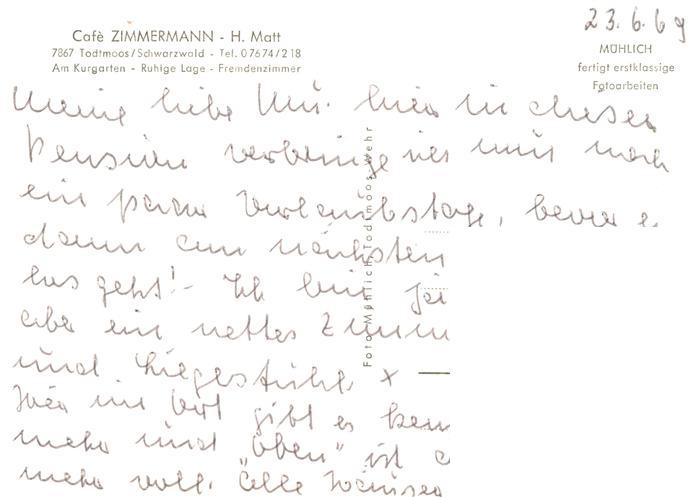 23.6.69
Cafè ZIMMERMANN - H. Matt
7867 Todtmoos/Schwarzwald - Tel. 07674/218
Am Kurgarten - Ruhige Lage - Fremdenzimmer
MÜHLICH
fertigt erstklassige
Fotoarbeiten
Meine liebe hier in dieser
Pension verbringe ich nun noch
ein paar Urlaubstage, bevor e
dann am nächsten
los geht! - Ich bin
aber ein nettes Zimm
und Liegestühle x
Hier im Ort gibt es kein
mehr und "oben" ist
mehr voll. Alle Häuser
Foto Mühlich, Todtmoos Wehr